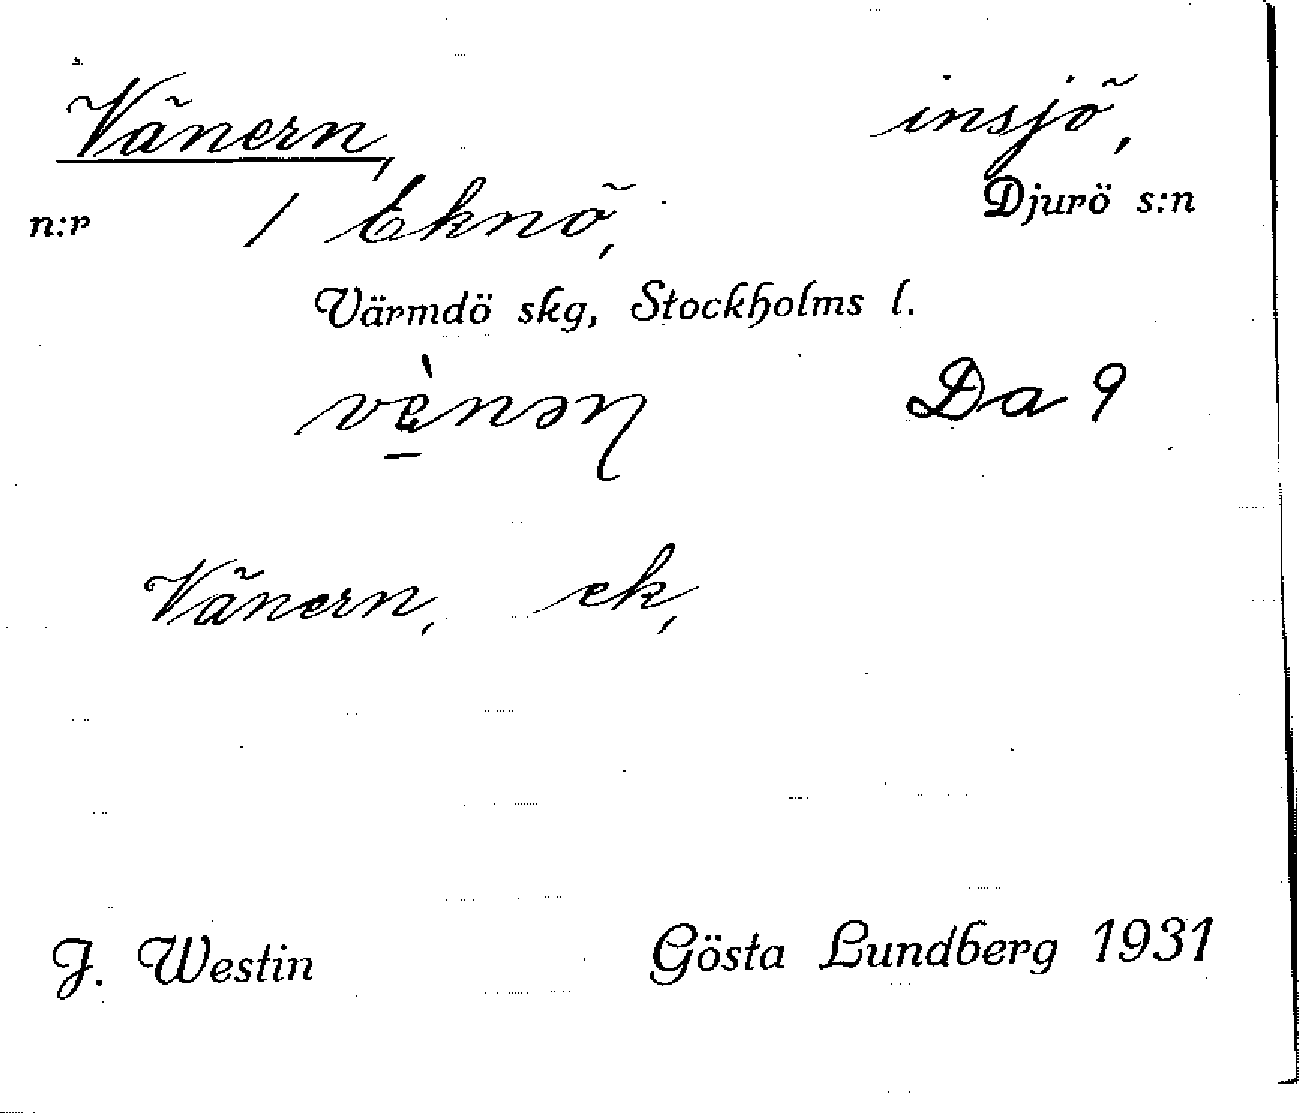 Vänern, insjö,
n:r 1 Eknö, Djurö s:n
Värmdö skg, Stockholms l.
Da 9
Vänern, ek,
J. Westin Gösta Lundberg 1931